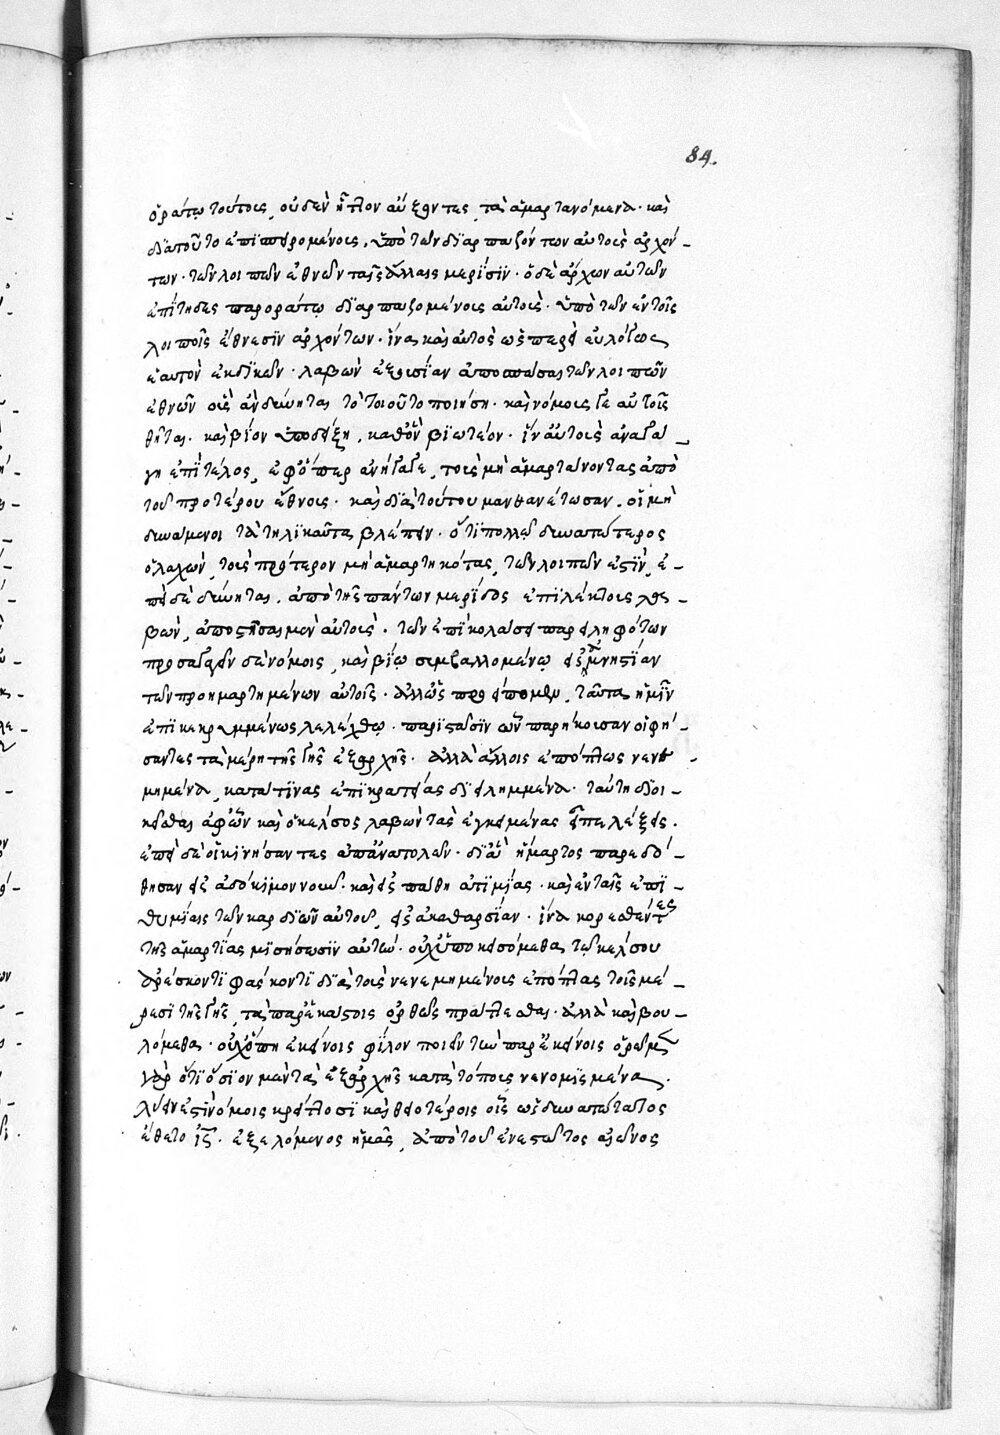 84.
ὁράτω τούτοις, οὐδὲν ἧττον αὔξοντες, τὰ ἁμαρτανόμενα· καὶ
διὰ τοῦτο ἐπιστρεφομένοις, ὑπὸ τῶν διαρπαζόντων αὐτοὺς ἀρχόν-
των· τῶν λοιπῶν ἐθνῶν ταῖς ἄλλαις μερίσιν· ὁ δὲ ἄρχων αὐτῶν
ἐπίτηδες παροράτω διαρπαζομένοις αὐτοὺς· ὑπὸ τῶν ἐν τοῖς
λοιποῖς ἔθνεσιν ἀρχόντων· ἵνα καὶ αὐτὸς ὥσπερεὶ εὐλόγως
ἑαυτὸν ἐκδικῶν· λαβὼν ἐξουσίαν ἀποσπάσας τῶν λοιπῶν
ἐθνῶν οὓς ἂν δύνηται τὸ τοιοῦτο ποιήσῃ· καὶ νόμους τε αὐτοῖς
θῆται· καὶ βίον ὑποδείξῃ, καθ' ὃν βιωτέον· ἵν' αὐτοὺς ἀναγά-
γῃ ἐπὶ τέλος, ἐφ' ὅπερ ἀνήγαγε, τοὺς μὴ ἁμαρτάνοντας ἀπὸ
τοῦ προτέρου ἔθνους· καὶ διὰ τούτου μανθανέτωσαν, οἱ μὴ
δυνάμενοι τὰ τηλικαῦτα βλέπειν· ὅτι πολλῷ δυνατώτερος
ὁ λαχὼν, τοὺς πρότερον μὴ ἁμαρτηκότας, τῶν λοιπῶν ἐστὶν, ἐ-
πεὶ δεδύνηται, ἀπὸ τῆς πάντων μερίδος ἐπιλέκτους λα-
βὼν, ἀποστῆσαι μὲν αὐτοὺς· τῶν ἐπὶ κολάσει παρειληφότων
προσαγαγεῖν δὲ νόμοις, καὶ βίῳ συμβαλλομένῳ εἰς ἀμνηστίαν
τῶν προημαρτημένων αὐτοῖς· ἀλλ' ὡς προείπομεν, ταῦτα ἡμῖν
ἐπικεκρυμμένως λελέχθω· παριστᾶσιν ὧν παρήκουσαν οἱ φή-
σαντες τὰ μέρη τῆς γῆς ἐξ ἀρχῆς· ἀλλὰ ἄλλοις ἐπόπταις νενε-
μημένα, κατά τινας ἐπικρατείας διειλημμένα· ταύτῃ διοι-
κεῖσθαι ἀφ' ὧν καὶ ὁ κέλσος λαβὼν τὰς ἐγκειμένας εἶπε λέξεις.
ἐπεὶ δὲ οἱ κινήσαντες ἀπ' ἀνατολῶν· δι' ἃ ἥμαρτον παρεδό-
θησαν εἰς ἀδόκιμον νοῦν· καὶ εἰς πάθη ἀτιμίας· καὶ ἐν ταῖς ἐπι-
θυμίαις τῶν καρδιῶν αὐτοῦ, εἰς ἀκαθαρσίαν· ἵνα κορεσθέντες
τῆς ἁμαρτίας μισήσωσιν αὐτὴν· οὐχ ὑποκεισόμεθα τῷ κέλσου
ἀρέσκοντι φάσκοντι διὰ τοὺς νενεμημένους ἐπόπτας τοῖς μέ-
ρεσι τῆς γῆς, τὰ παρ' ἑκάστοις ὀρθῶς πράττεσθαι· ἀλλὰ καὶ βου-
λόμεθα· οὐχ ὅπη ἐκείνοις φίλον ποιεῖν τὰ παρ' ἐκείνοις ὁρῶμεν
γὰρ ὅτι ὅσιον μὲν τὰ ἐξ ἀρχῆς κατὰ τόπους νενομισμένα,
λύειν ἐστὶ νόμοις κρείττοσι καὶ θειοτέροις οἷς ὡς δυνατώτατος
ἔθετο ις̅· ἐξελόμενος ἡμᾶς, ἀπὸ τοῦ ἐνεστῶτος αἰῶνος